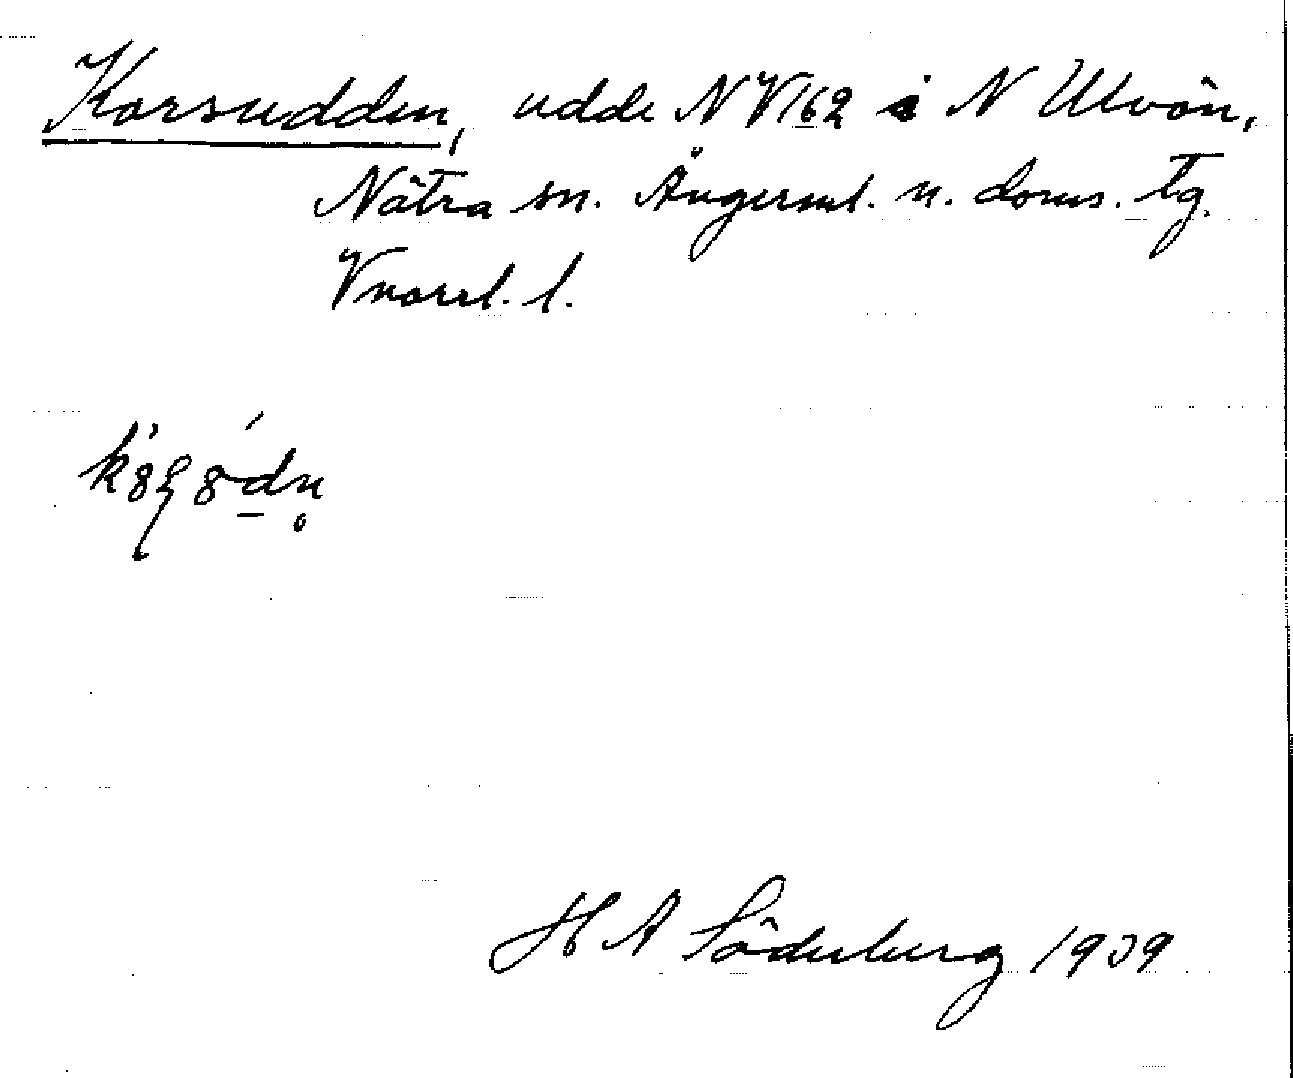 Korsudden, udde NV162 i N Ulvön,
Nätra sn. Ångerml. n. doms. tg.
Vnorrl. l.
H A Söderberg 1939